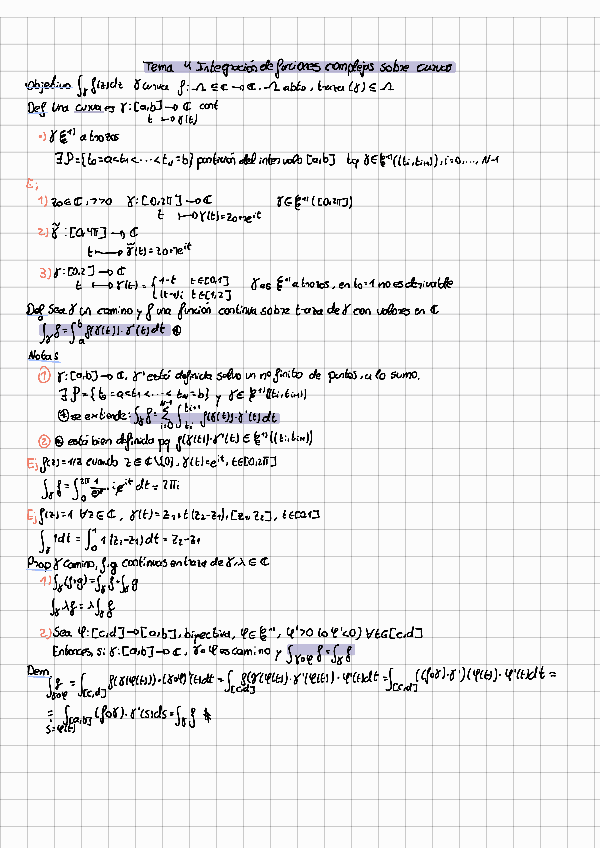 Tema 4 Integración de funciones complejas sobre curvas
Objetivo ∫_γ f(z)dz γ curva f: Ω ⊆ ℂ → ℂ. Ω abto, traza(γ) ⊆ Ω
Def Una curva es γ: [a,b] → ℂ cont
t ↦ γ(t)
•) γ ℰ¹⁾ a trozos
∃P={t₀=a<t₁<...<t_N=b} partición del intervalo [a,b] tq γ∈ℰ¹⁾((ti,ti+1)), i=0,..., N-1
Ej
1) z₀∈ℂ, r>0 γ: [0,2π] → ℂ γ∈ℰ¹⁾([0,2π])
t ↦ γ(t)=z₀+re^it
2) γ̃: [0,4π] → ℂ
t ↦ γ̃(t)=z₀+re^it
3) γ: [0,2] → ℂ
t ↦ γ(t)= {1-t t∈[0,1] γ es ℰ¹⁾ a trozos, en t₀=1 no es derivable
t∈[1,2]
Def Sea γ un camino y f una función continua sobre traza de γ con valores en ℂ
∫_γ f = ∫_a^b f(γ(t))·γ'(t)dt ⊛
Notas
① γ: [a,b] → ℂ, γ' está definida salvo un nº finito de puntos, a lo sumo.
∃P={t₀=a<t₁<...<t_N=b} y γ∈ℰ¹⁾(ti,ti+1)
⊛ se extiende: ∫_γ f = Σ_{i=0}^{N-1} ∫_{ti}^{ti+1} f(γ(t))·γ'(t)dt
② ⊛ está bien definida pq f(γ(t))·γ'(t) ∈ ℰ¹⁾((ti,ti+1))
Ej f(z)=1/z cuando z∈ℂ\{0}, γ(t)=e^it, t∈[0,2π]
∫_γ f = ∫_0^2π 1/e^it · ie^it dt = 2πi
Ej f(z)=1 ∀z∈ℂ, γ(t)=z₁+t(z₂-z₁), [z₁,z₂], t∈[0,1]
∫_γ 1dt = ∫_0^1 1(z₂-z₁)dt = z₂-z₁
Prop γ camino, f,g continuas en traza de γ, λ∈ℂ
1) ∫_γ (f+g) = ∫_γ f + ∫_γ g
∫_γ λf = λ∫_γ f
2) Sea φ: [c,d] → [a,b], biyectiva, φ∈ℰ¹⁾, φ'>0 (o φ'<0) ∀t∈[c,d]
Entonces, si γ: [a,b] → ℂ, γ∘φ es camino y ∫_γ∘φ f = ∫_γ f
Dem
∫_γ∘φ f = ∫_[c,d] f(γ(φ(t)))·(γ∘φ)'(t)dt = ∫_[c,d] f(γ(φ(t)))·γ'(φ(t))·φ'(t)dt = ∫_[c,d] ((f∘γ)·γ')(φ(t))·φ'(t)dt =
= ∫_[a,b] (f∘γ)·γ'(s)ds = ∫_γ f
s=φ(t)